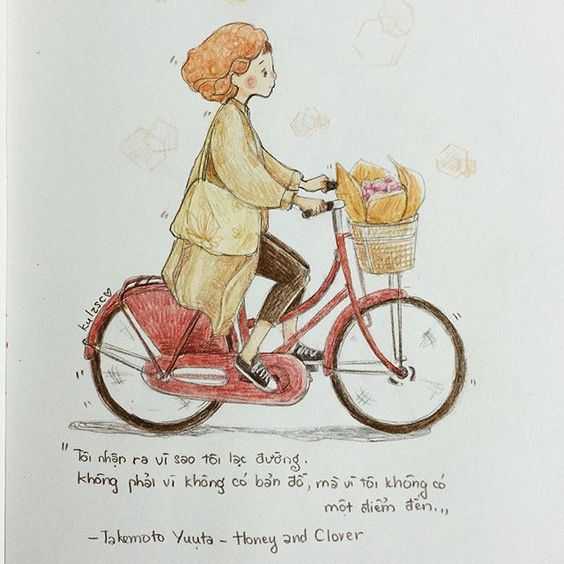 kulzsc
"Tôi nhận ra vì sao tôi lạc đường.
Không phải vì không có bản đồ, mà vì tôi không có
một điểm đến..,,
— Takemoto Yuuta - Honey and Clover